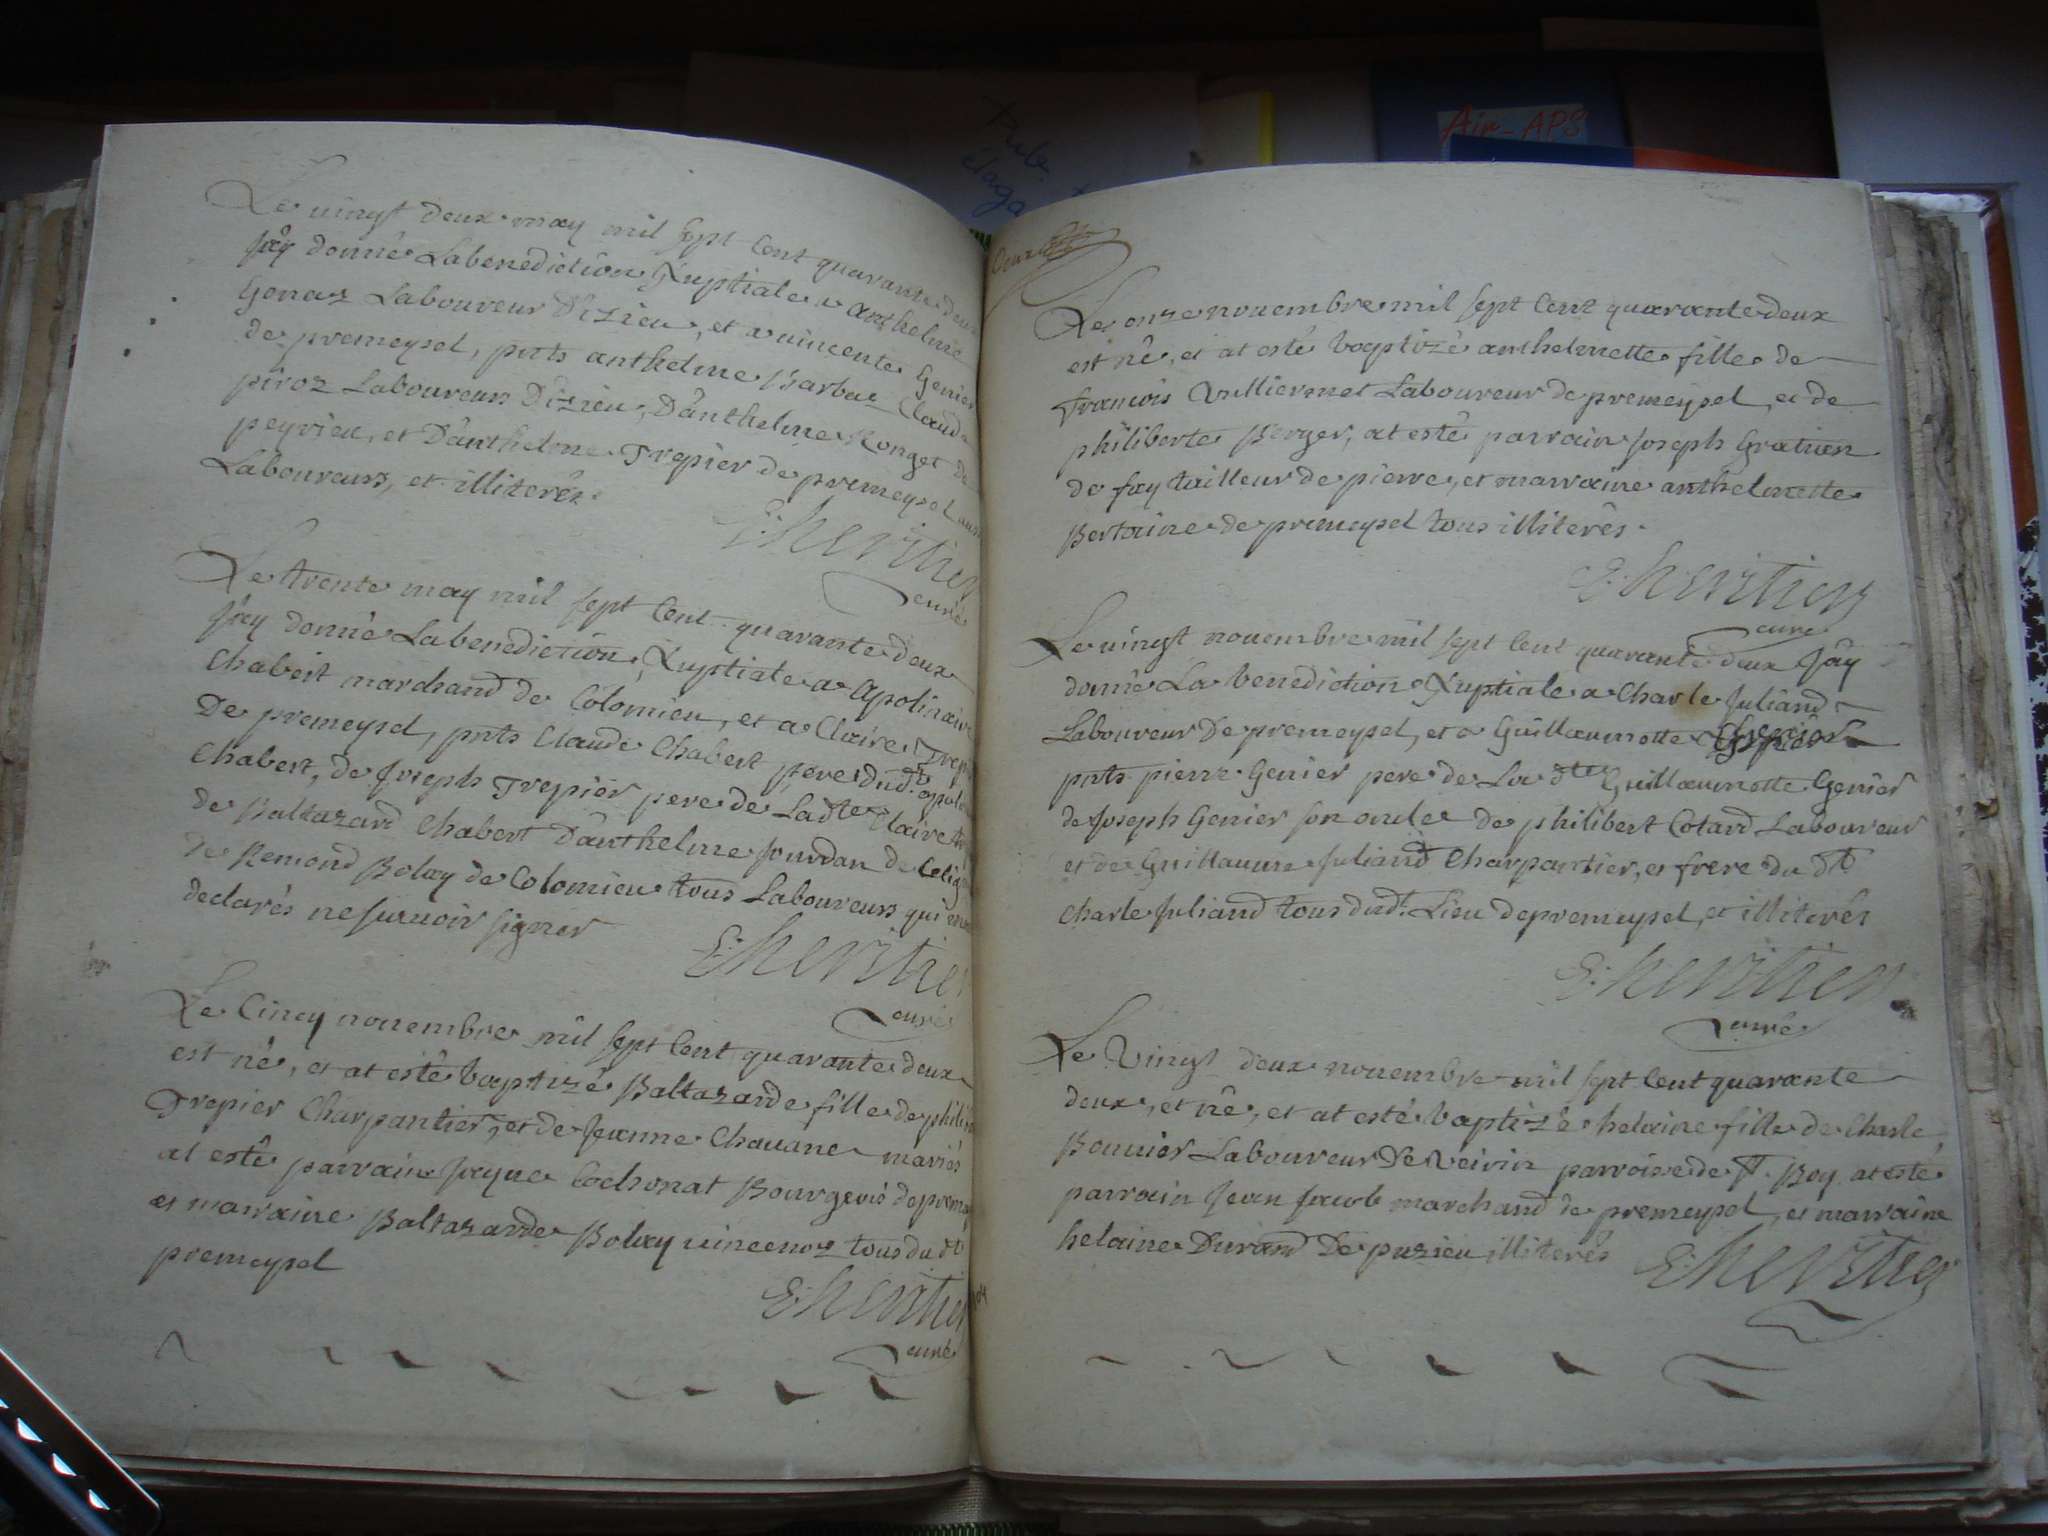 Air-APS
Pub.
élaga
Le vingt deux may mil sept Cent quarante deux
Jay donné La benediction Nuptiale a anthelme
Genaz Laboureur Dizieu, et a vincente Genier
de premeysel, pnts anthelme Barbae Claude
piroz Laboureurs Dizieu, Danthelme Ronget de
peyrieu, et Danthelme Trepier de premeysel aussi
Laboureurs, et illiterés.
E: heritier
curé
Le trente may mil sept Cent quarante deux
Jay donné La benediction Nuptiale a Apolinaire
Chabert marchand de Colomieu, et a Claire Trepier
De premeysel, pnts Claude Chabert pere dudt. apolin
Chabert, de Joseph Trepier pere de Ladte Claire tre
de Baltazard Chabert Danthelme Jourdan de Colig
de Remond Bolay de Colomieu tous Laboureurs qui
declarés ne scavoir signer
E: heritier
curé
Le Cincq nouembre mil sept Cent quarante deux
est né, et at esté baptizé Baltazarde fille de phili
Trepier Charpantier, et de Jeanne Chauane mariés
at esté parrain Jaque Cochonat Bourgeois de preme
et marraine Baltazarde Bolay vincenoz tous du dt
premeysel
E: heritier
curé
Le onze nouembre mil sept Cent quarante deux
est né, et at esté baptizé anthelmette fille de
francois Vulliermet Laboureur de premeysel, et de
philiberte Berger, at esté parrain Joseph Gratien
de fay tailleur de pierre, et marraine anthelmette
Bertaine de premeysel tous illiterés.
E: heritier
curé
Le vingt nouembre mil sept Cent quarante deux Jay
donné La benediction Nuptiale a Charle Juliand
Laboureur De premeysel, et a Guillaumette Genier
pnts pierre Genier pere de La dte Guillaumette Genier
de Joseph Genier son oncle de philibert Cotard Laboureur
et de Guillaume Juliand Charpantier, et frere du dt
Charle Juliand tous dudt. Lieu de premeysel, et illiterés
E: heritier
curé
Le Vingt deux nouembre mil sept Cent quarante
deux, et né, et at esté baptizé helaine fille de Charle
Bonnier Laboureur De Veirin parroise de St. Boy at esté
parrain Jean Jacob marchand de premeysel, et marraine
helaine Durand De puzieu illiterés
E: heritier